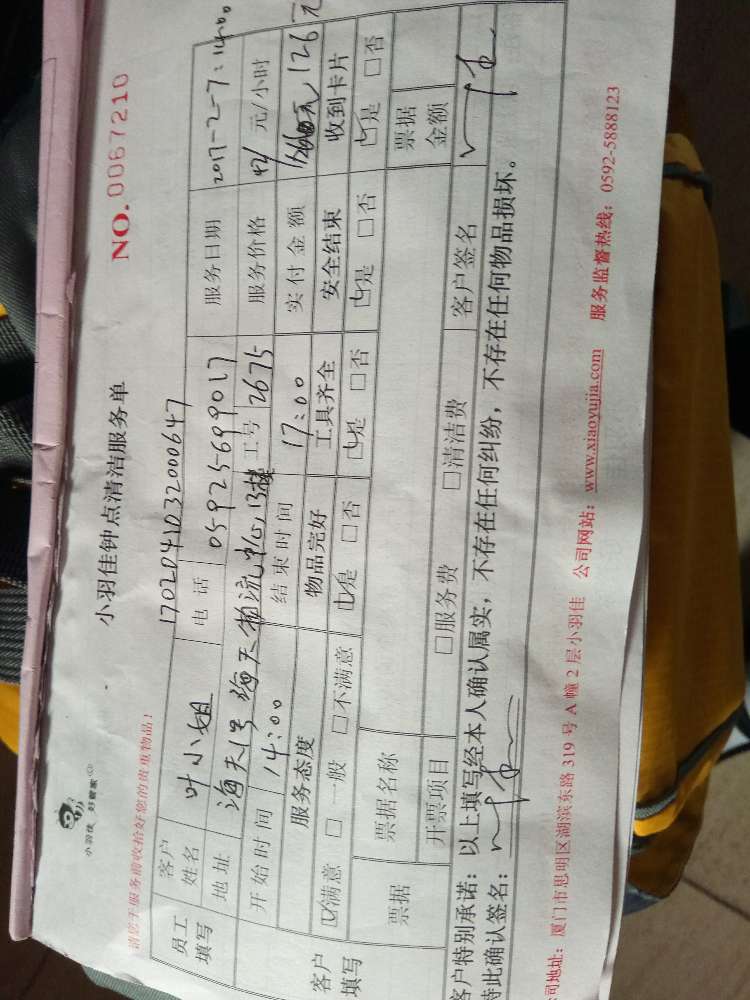 小羽佳 好管家
小羽佳钟点清洁服务单
NO.0067210
请您于服务前收拾好您的贵重物品!
1702041032000647
员工填写
客户姓名 叶小姐 电话 05925699017 服务日期 2017-2-7:14:00
地址 海天1号 海天物流中心,13楼 工号 2675 服务价格 42 元/小时
开始时间 14:00 结束时间 17:00 实付金额 126元
客户填写
服务态度 物品完好 工具齐全 安全结束 收到卡片
☑满意 □一般 □不满意 ☑是 □否 ☑是 □否 ☑是 □否 ☑是 □否
票据 票据名称 票据金额
开票项目 □服务费 □清洁费 客户签名
客户特别承诺:以上填写经本人确认属实,不存在任何纠纷,不存在任何物品损坏。
特此确认签名:
公司地址:厦门市思明区湖滨东路319号A幢2层小羽佳 公司网站:www.xiaoyujia.com 服务监督热线:0592-5888123